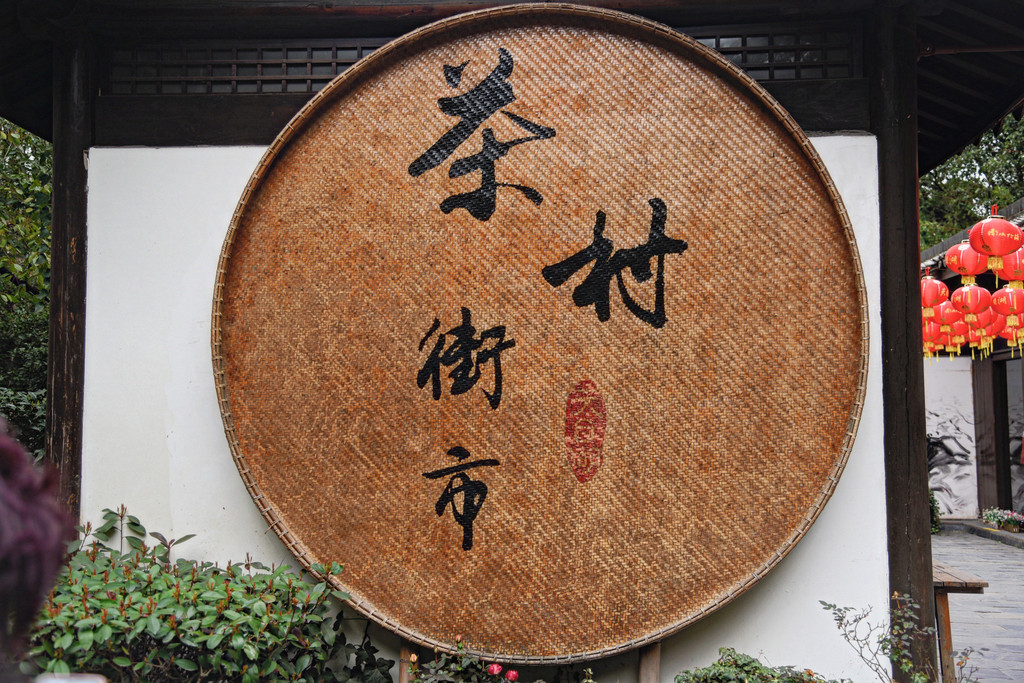 茶
村
街市